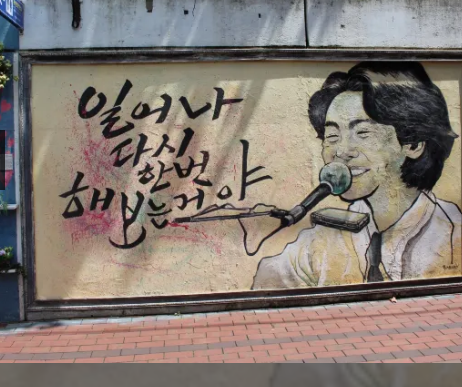 일어나
다시
한번
해보는거야